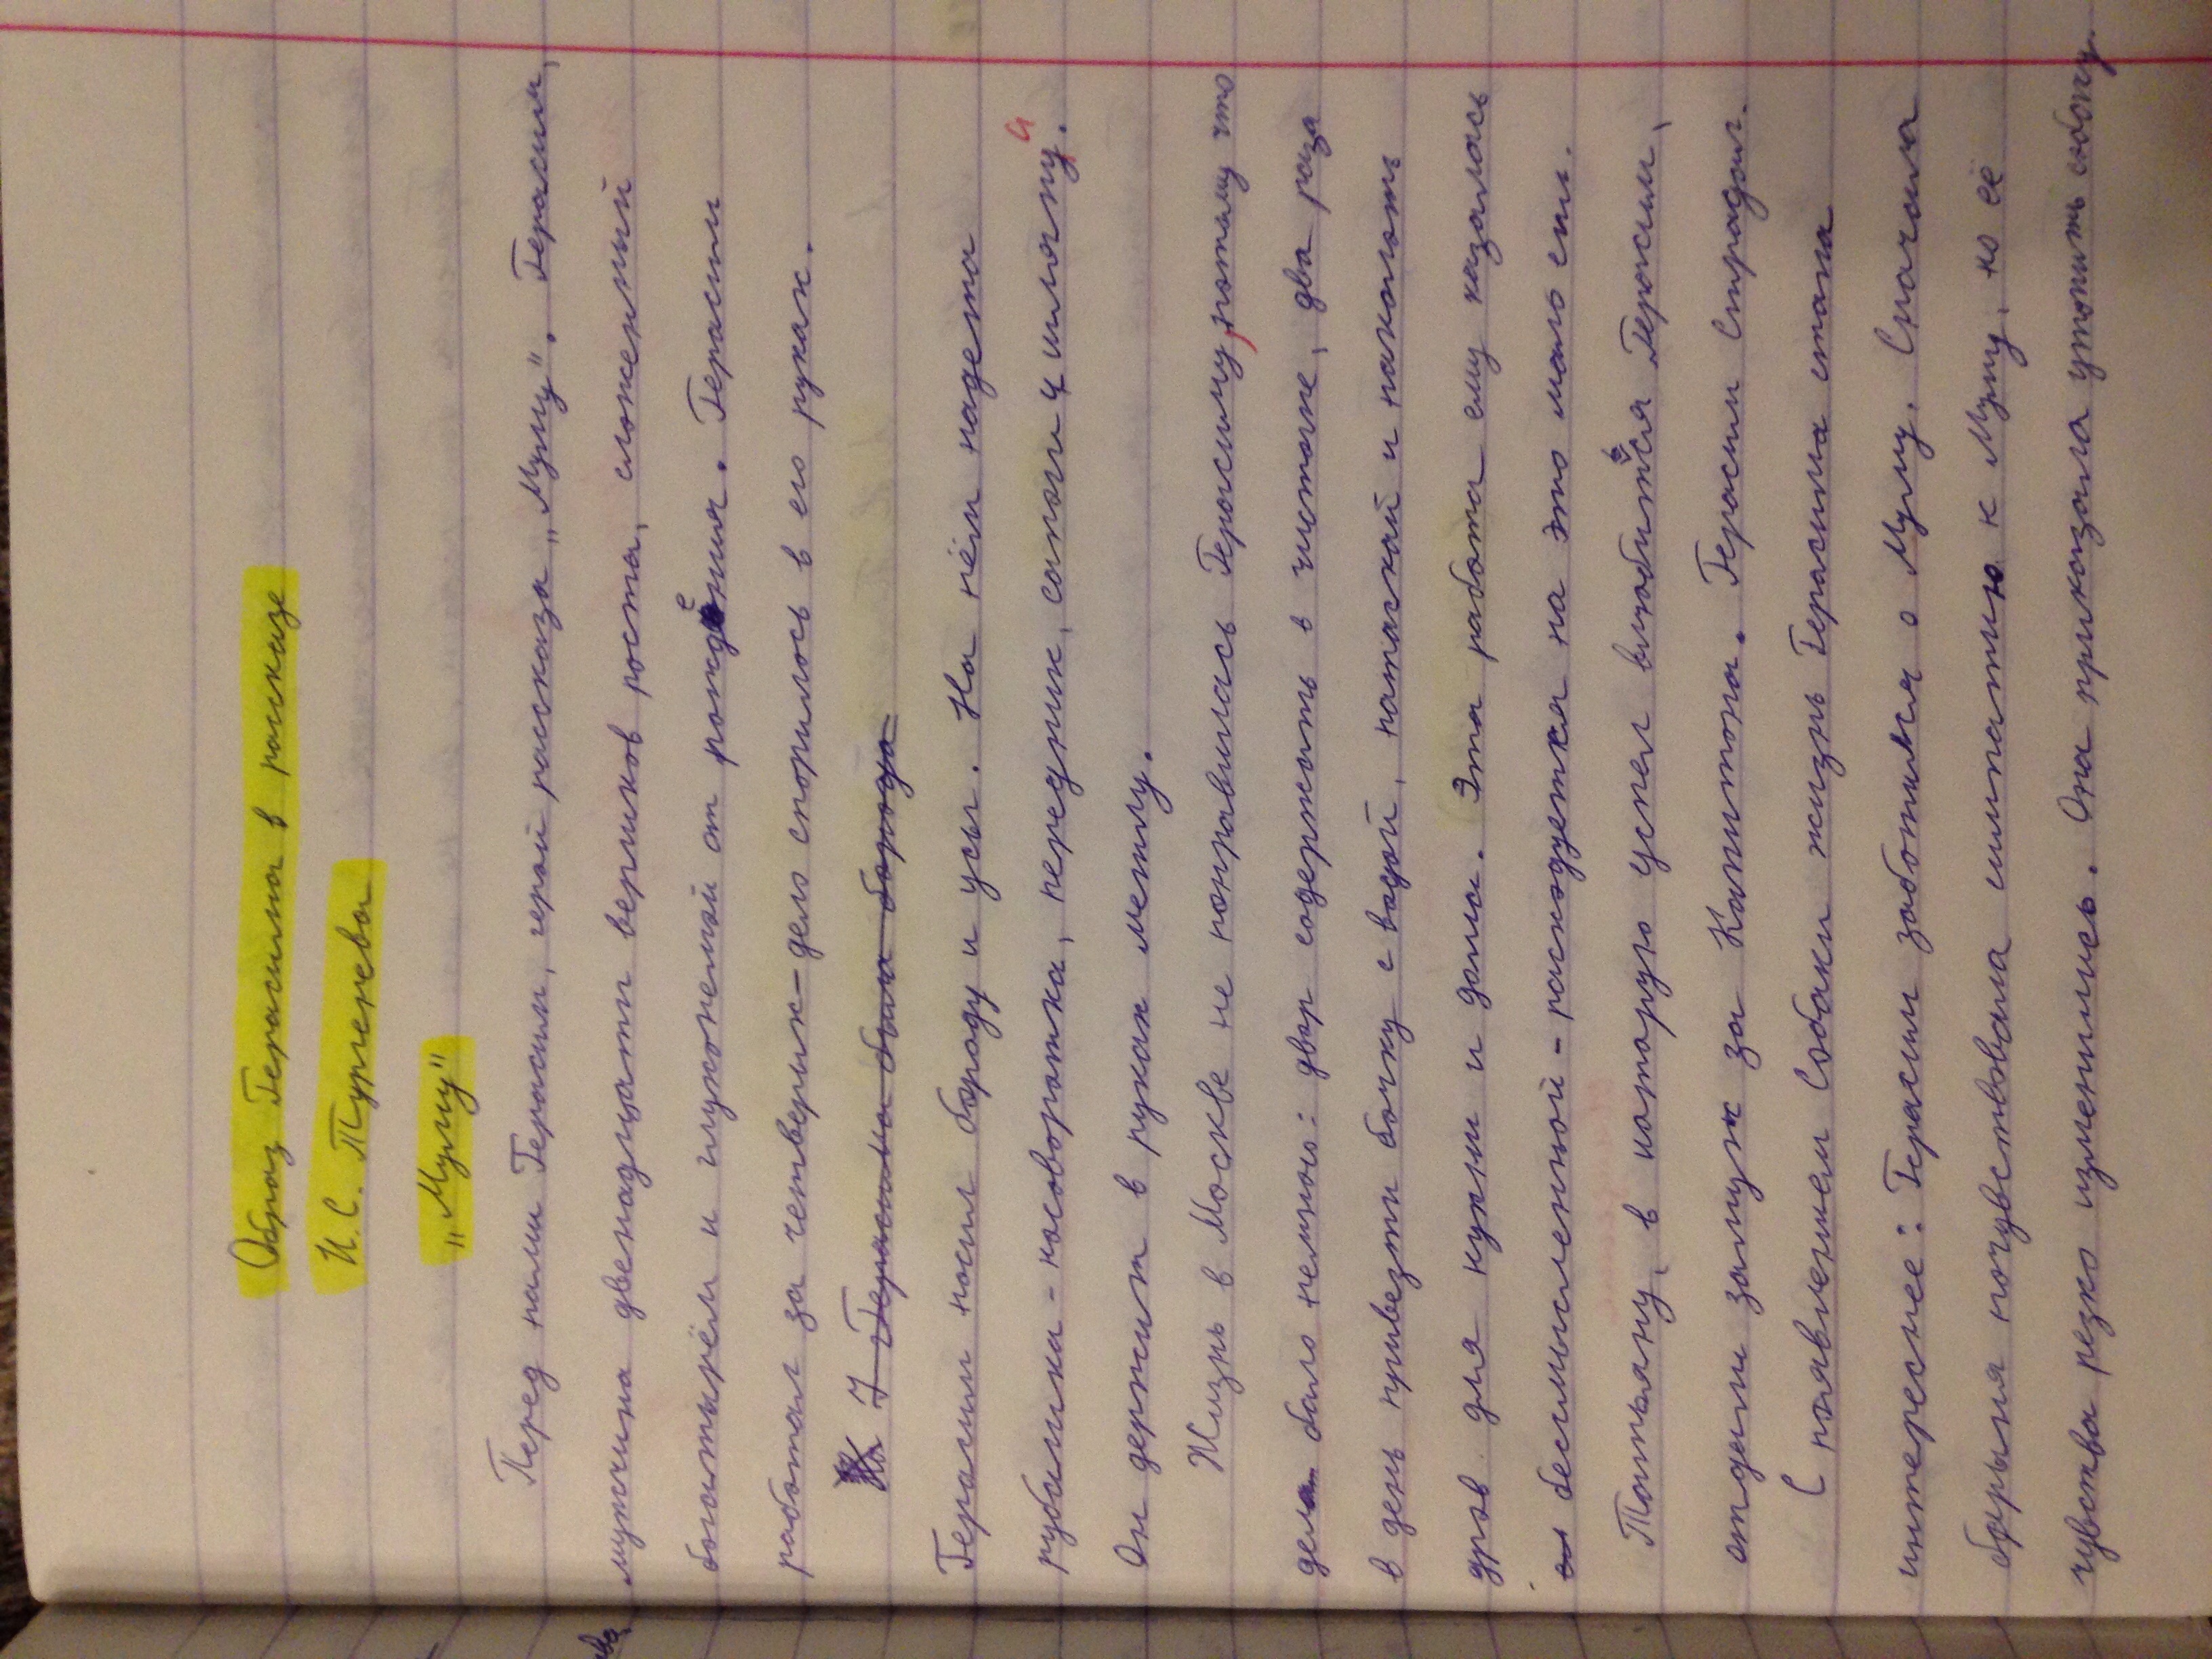 Образ Герасима в рассказе
И.С. Тургенева
„Муму"
Перед нами Герасим, герой рассказа „Муму". Герасим,
мужчина двенадцати вершков роста, сложенный
богатырём и глухонемой от рождения. Герасим
работал за четверых - дело спорилось в его руках.
У Герасима была борода
Герасим носил бороду и усы. На нём надета
рубашка - косоворотка, передник, сапоги и шляпу.а
Он держит в руках метлу.
Жизнь в Москве не понравилась Герасиму, потому что
дела было немного: двор содержать в чистоте, два раза
в день привезти бочку с водой, натаскай и наколоть
дров для кухни и дома. Эта работа ему казалась
бесмысленной - расходуется на это мало сил.
Татьяну, в которую успел влюбиться Герасим,
отдали замуж за Капитона. Герасим страдал.
С появлением Собаки жизнь Герасима стала
интереснее: Герасим заботился о Муму. Сначала
барыня почувствовала симпатию к Муму, но её
чувства резко изменились. Она приказала утопить собаку.